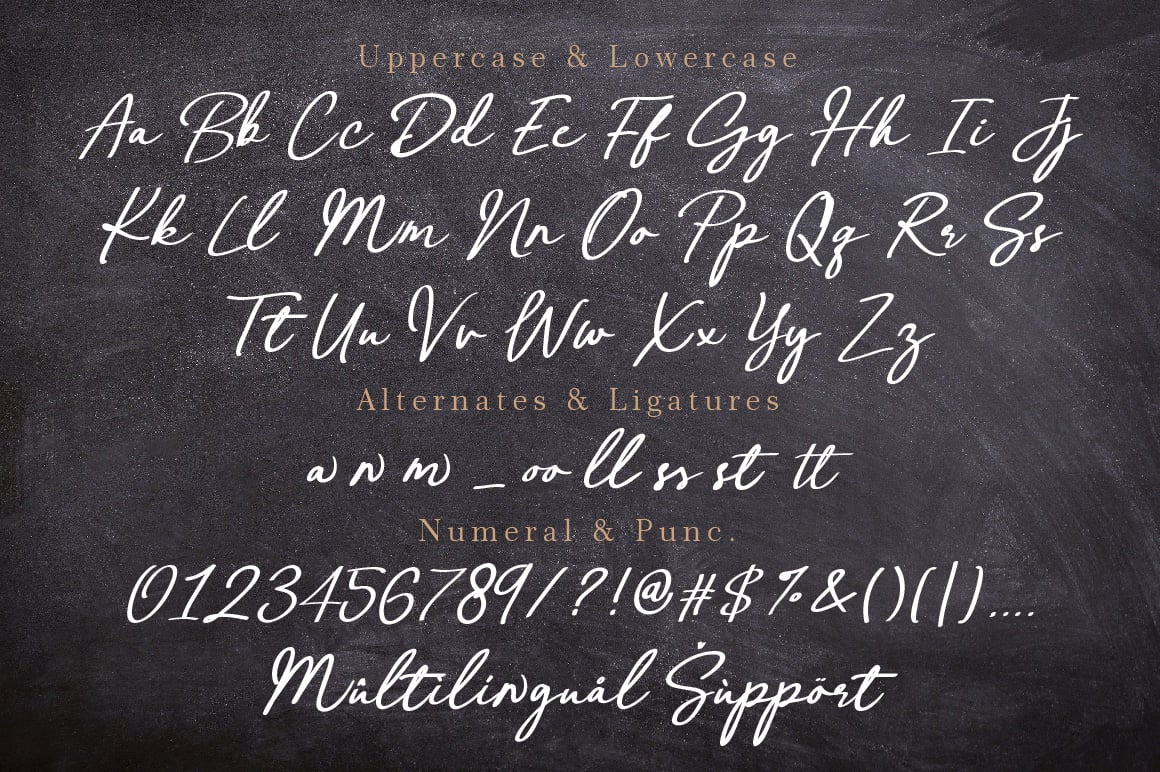 Uppercase & Lowercase
Aa Bb Cc Dd Ee Ff Gg Hh Ii Jj
Kk Ll Mm Nn Oo Pp Qq Rr Ss
Tt Uu Vv Ww Xx Yy Zz
Alternates & Ligatures
a n m _ oo ll ss st tt
Numeral & Punc.
0123456789/?!@#$%&()(|)....
Mûltilínguål Ṡùppört